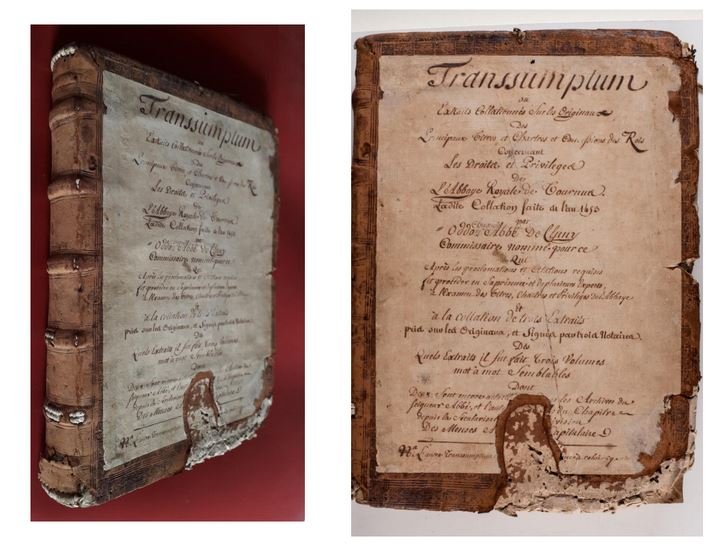 Transsumptum
ou
Extraits Collationnés Sur les Originaux
Des
Principaux Titres et Chartres et Con̄ssions des Rois
Concernant
Les Droits et Privileges
De
L'Abbaye Royale de Tournus.
Ladite Collation faite de l'an 1453
par
Odon Abbé De Cluny
Commissaire nommé pour ce
Qui
Après les proclamations et Citations requises
fit proceder en sa présence et de plusieurs Experts
à l'Examen des Titres, Chartres et Privileges de l'Abbaye
et
à la collation de trois Extraits
pris sur les Originaux, et Signés par trois Notaires.
Des
Quels Extraits il fut fait Trois Volumes
mot à mot Semblables
Dont
Deux Sont encore les Archives du
seigneur Abbé, et l'autre du Chapitre
depuis la
Des Menses Capitulaire